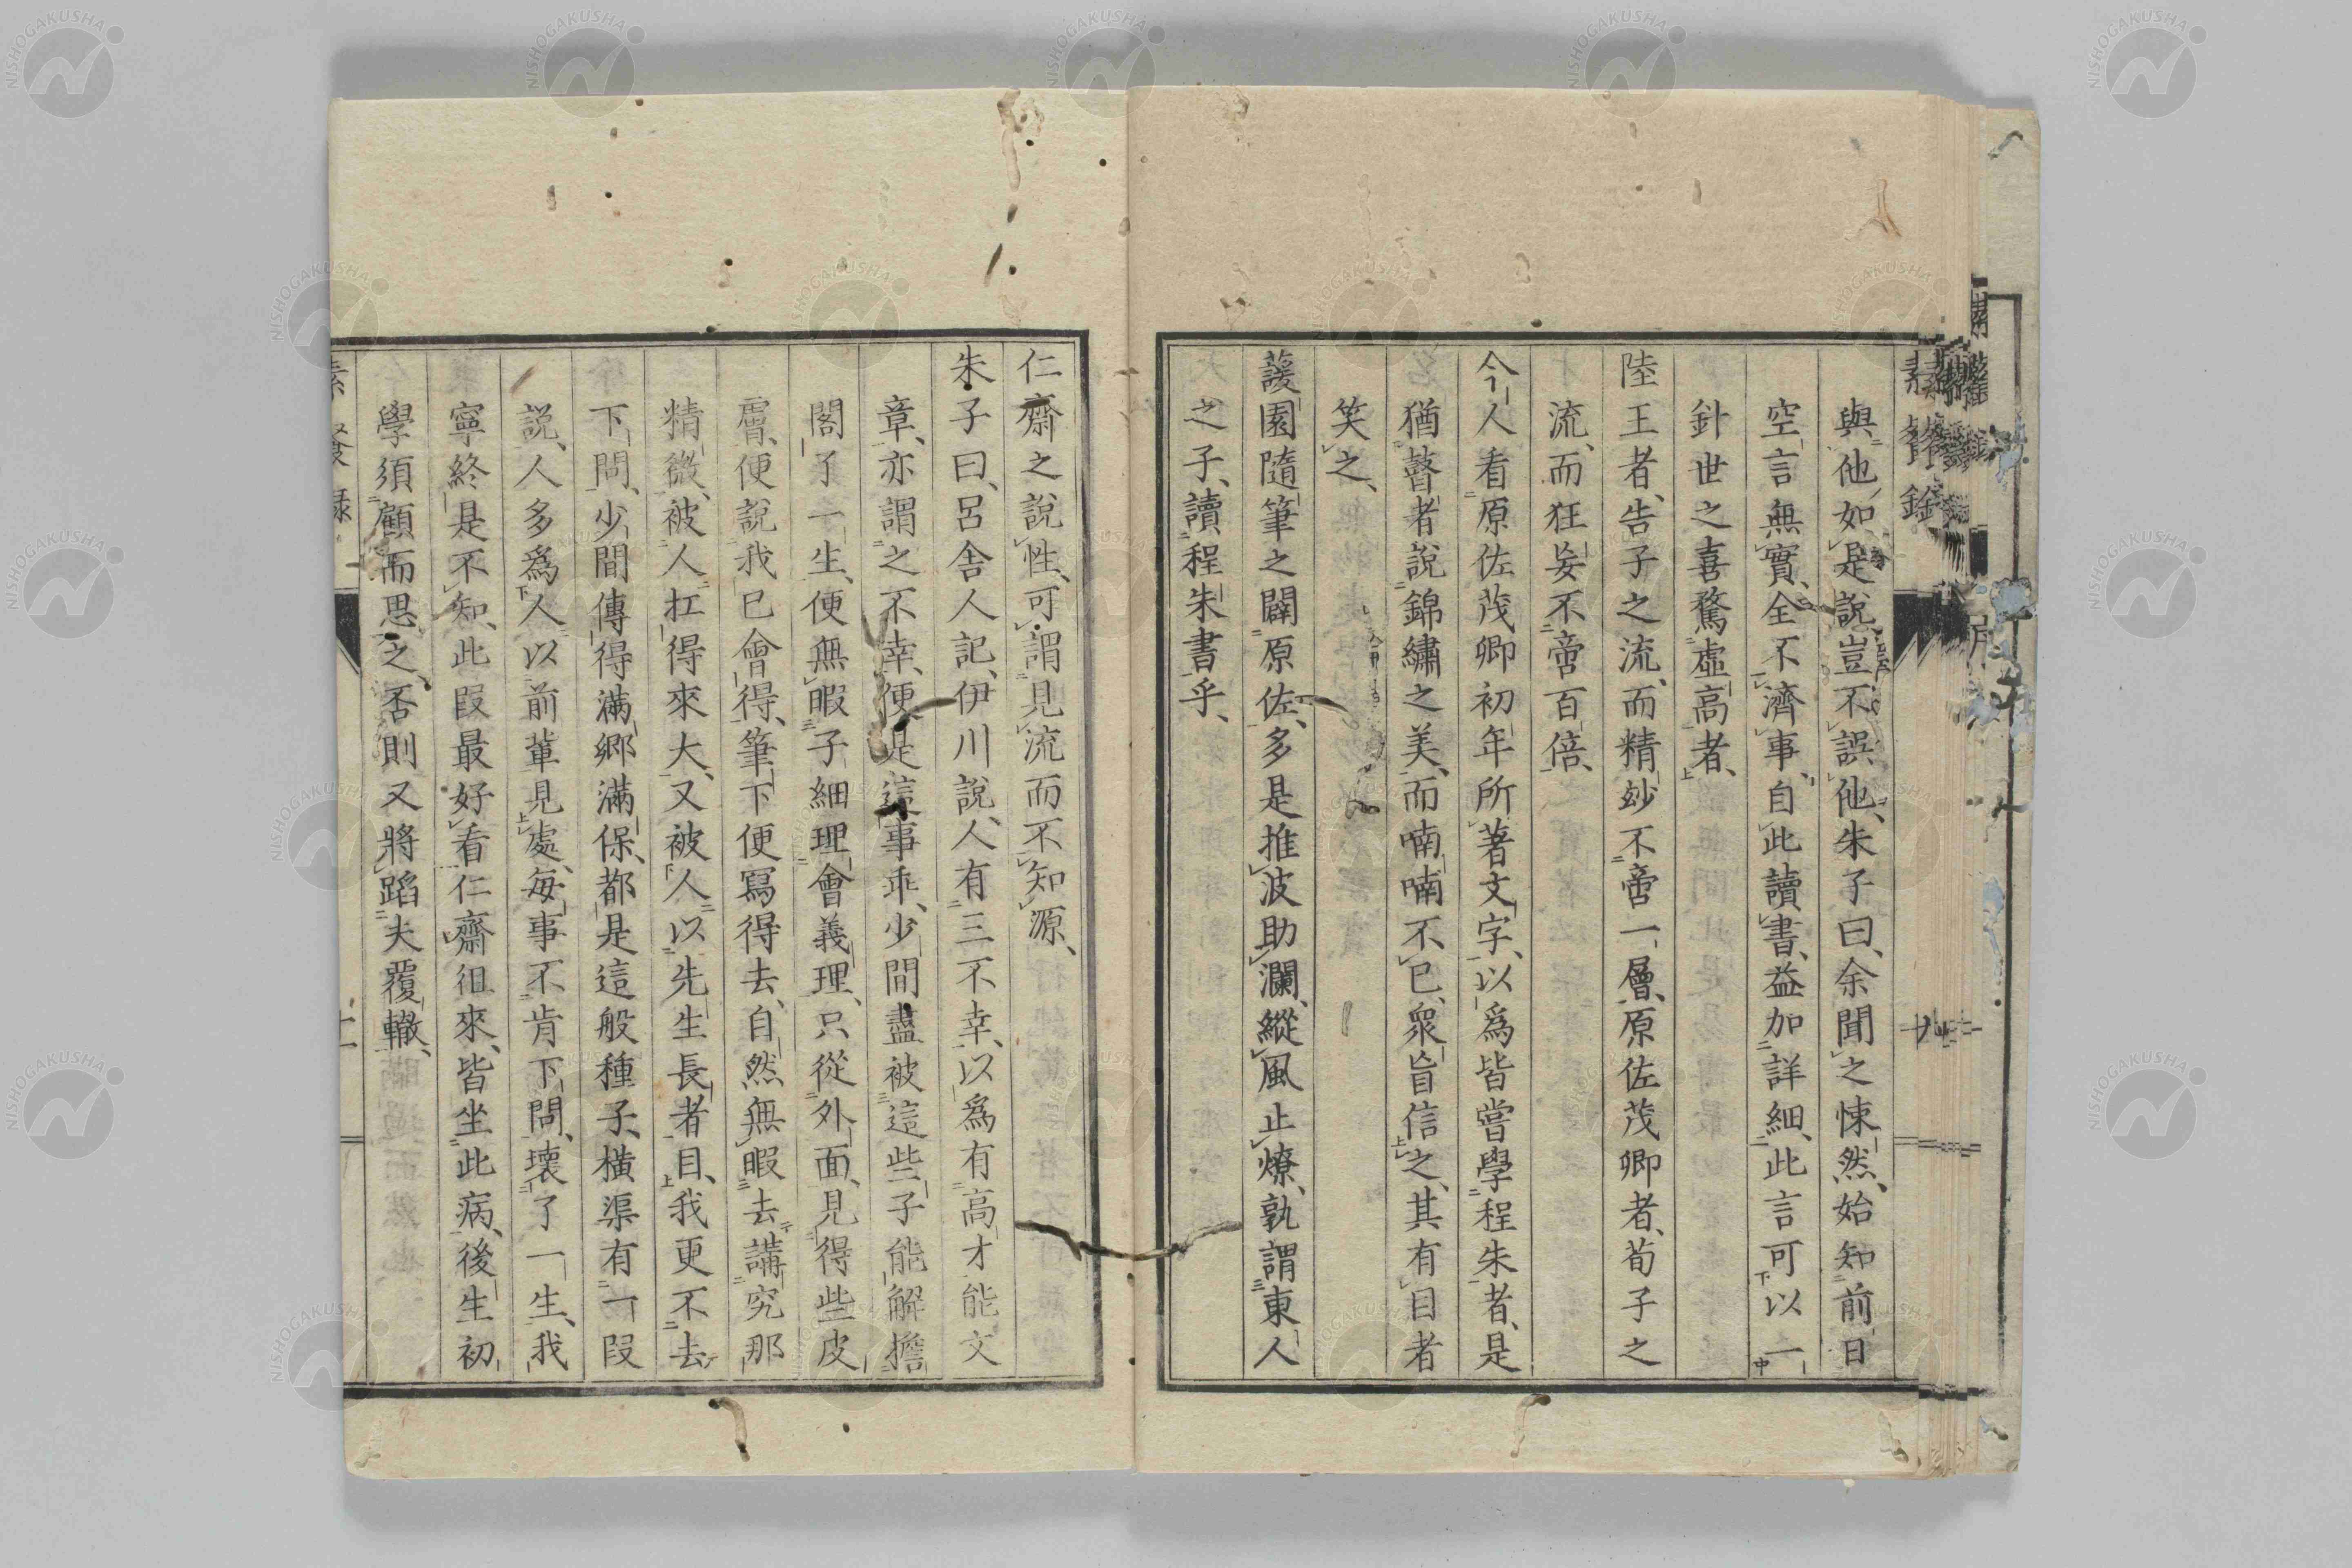 與他、如是說、豈不誤他、朱子曰、余聞之悚然、始知前日
空言無實、全不濟事、自此讀書、益加詳細、此言可以一
針世之喜騖虛高者、
陸王者、告子之流、而精妙不啻一層、原佐茂卿者、荀子之
流、而狂妄不啻百倍、
今人看原佐茂卿初年所著文字、以爲皆嘗學程朱者、是
猶瞽者說錦繡之美、而喃喃不已、衆盲信之、其有目者
笑之、
蘐園隨筆之闢原佐、多是推波助瀾、縱風止燎、孰謂東人
之子、讀程朱書乎、
仁齋之說性、可謂見流而不知源、
朱子曰、呂舍人記、伊川說、人有三不幸、以爲有高才能文
章、亦謂之不幸、便是這事乖、少間盡被這些子能解擔
閣了一生、便無暇子細理會義理、只從外面、見得些皮
膚、便說我已會得、筆下便寫得去、自然無暇去講究那
精微、被人扛得來大、又被人以先生長者目、我更不去
下問、少間傳得滿鄉滿保、都是這般種子、橫渠有一段
說、人多爲人以前輩見處、每事不肯下問、壞了一生、我
寧終是不知、此段最好看仁齋徂來、皆坐此病、後生初
學須顧而思之、否則又將蹈夫覆轍、
NISHOGAKUSHA